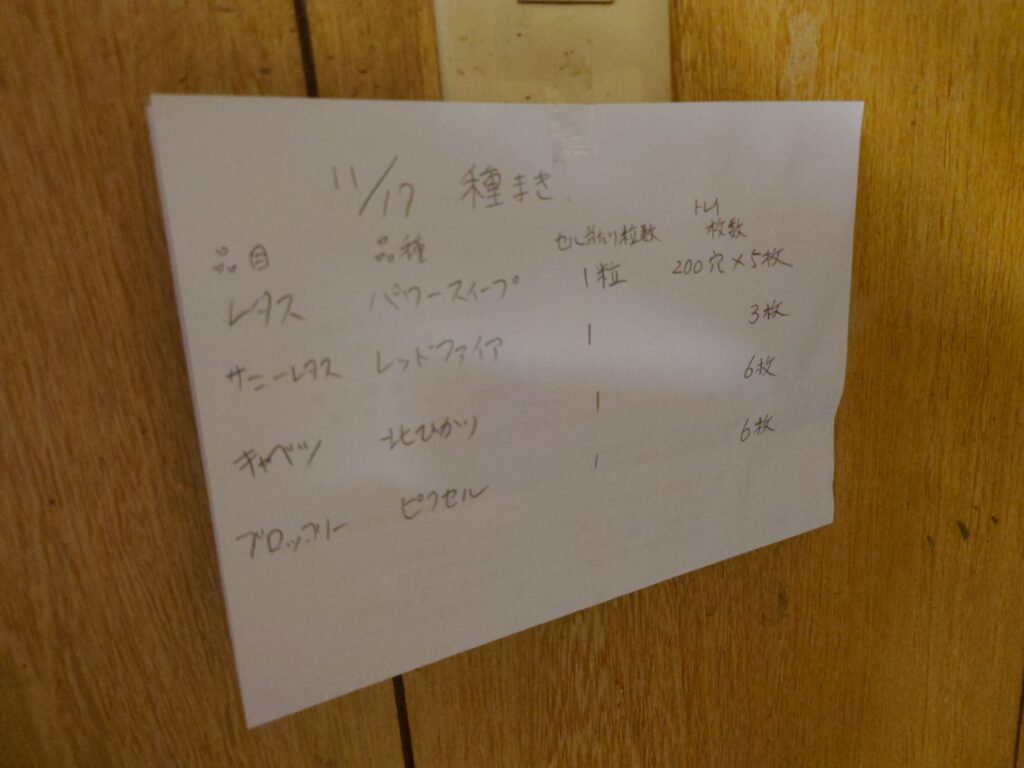 11/17 種まき
品目 品種 セル当たり粒数 トレイ枚数
レタス パワースイープ 1粒 200穴×5枚
サニーレタス レッドファイア 1 3枚
キャベツ 北ひかり 1 6枚
ブロッコリー ピクセル 1 6枚